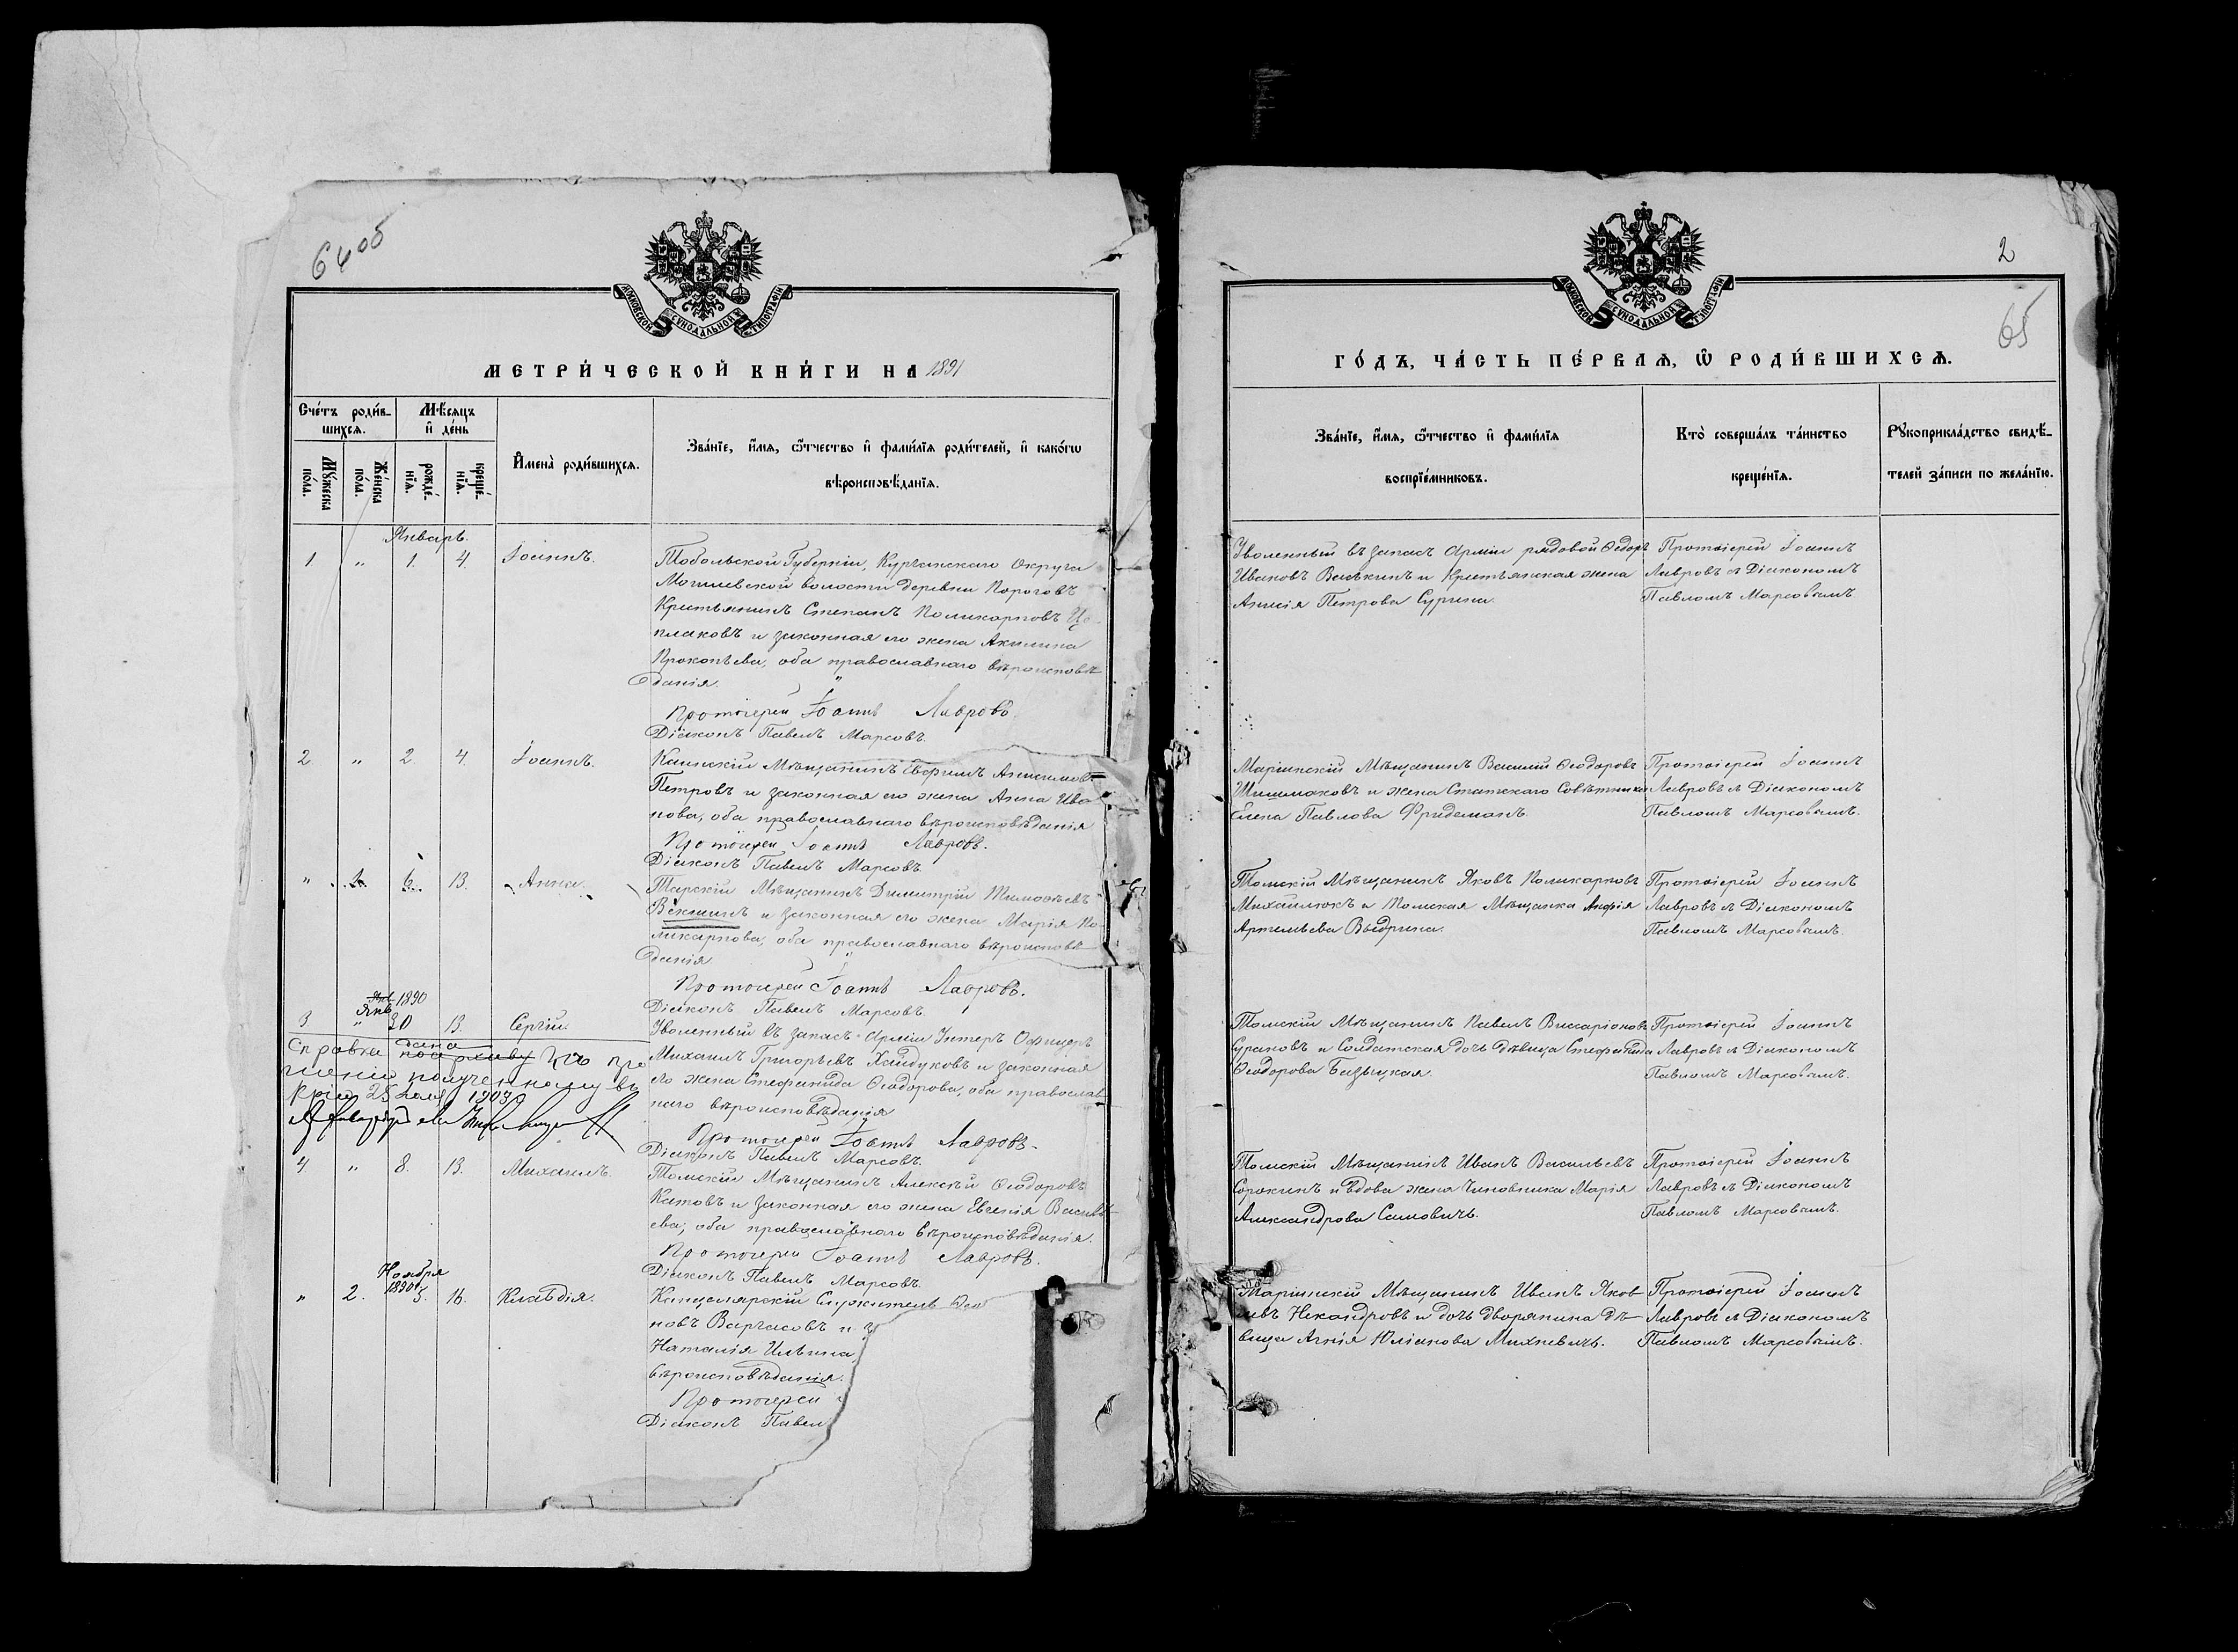 64об
МОСКОВСКОЙ СѴНОДАЛЬНОЙ ТИПОГРАФІИ
МЕТРИ́ЧЕСКОЙ КНИ́ГИ НА 1891
Сче́тъ роди́в-
шихсѧ.
Мѣ́сѧцъ
и҆ де́нь
Мꙋ́жеска
по́ла.
Же́нска
по́ла.
рожде́-
нїѧ.
креще́-
нїѧ.
И҆мена̀ роди́вшихсѧ.
Зва́нїе, и҆́мѧ, ѻ҆́тчество и҆ фами́лїѧ роди́телей, и҆ како́гѡ
вѣроисповѣ́данїѧ.
Январь.
1. " 1. 4. Іоаннъ.
Тобольской Губерніи, Курганскаго Округа
Могилевской волости деревни Пороговъ
Крестьянинъ Степанъ Поликарповъ
плаковъ и законная его жена Акилина
Прокопьева, оба православнаго вѣроисповѣ-
данія.
Протоіерей Іоаннъ Лавровъ.
Діаконъ Павелъ Марсовъ.
2. " 2. 4. Іоаннъ.
Каинскій Мѣщанинъ Евфимъ Анисимовъ
Петровъ и законная его жена Анна Ива-
нова, оба православнаго вѣроисповѣданія
Протоіерей Іоаннъ Лавровъ.
Діаконъ Павелъ Марсовъ.
" 1. 6. 13. Анна.
Тарскій Мѣщанинъ Димитрій Тимоѳеевъ
Векшинъ и законная его жена Марія По-
ликарпова, оба православнаго вѣроисповѣ-
данія
Протоіерей Іоаннъ Лавровъ.
Діаконъ Павелъ Марсовъ.
1890
Янв
3 " 30 13. Сергій.
Уволенный въ запасъ Арміи Унтеръ Офицеръ
Михаилъ Григорьевъ Хайдуковъ и законная
его жена Стефанида Ѳеодорова, оба православ-
наго вѣроисповѣданія
Протоіерей Іоаннъ Лавровъ.
Діаконъ Павелъ Марсовъ.
Справка дана
полученному въ
25 1909
4. " 8. 13. Михаилъ.
Томскій Мѣщанинъ Алексѣй Ѳеодоровъ
Катовъ и законная его жена Евгенія Василь-
ева, оба православнаго вѣроисповѣданія.
Протоіерей Іоаннъ Лавровъ.
Діаконъ Павелъ Марсовъ.
Ноября
1890
" 2. 5. 16. Клавдія.
Канцелярскій Служитель
новъ Варгасовъ и з
Наталія Ильина,
вѣроисповѣданія.
Протоіерей
Діаконъ Павел
2
65
МОСКОВСКОЙ СѴНОДАЛЬНОЙ ТИПОГРАФІИ
ГО́ДЪ, ЧА́СТЬ ПЕ́РВАѦ, Ѡ҆ РОДИ́ВШИХСѦ.
Зва́нїе, и҆́мѧ, ѻ҆́тчество и҆ фами́лїѧ
воспрїе́мниковъ.
Кто̀ соверша́лъ та́инство
креще́нїѧ.
Рꙋкоприкла́дство свидѣ́-
телей за́писи по жела́нїю.
Уволенный въ запасъ Арміи рядовой Ѳедоръ
Ивановъ Васькинъ и Крестьянская жена
Анисія Петрова Сурина.
Протоіерей Іоаннъ
Лавровъ съ Діакономъ
Павломъ Марсовымъ
Маріинскій Мѣщанинъ Василій Ѳеодоровъ
Шишмаковъ и жена Статскаго Совѣтника
Елена Павлова Фридеманъ.
Протоіерей Іоаннъ
Лавровъ съ Діакономъ
Павломъ Марсовымъ.
Томскій Мѣщанинъ Яковъ Поликарповъ
Михаилюкъ и Томская Мѣщанка Анфія
Артемьева Выдрина.
Протоіерей Іоаннъ
Лавровъ съ Діакономъ
Павломъ Марсовымъ.
Томскій Мѣщанинъ Павелъ Виссаріоновъ
Сурановъ и Солдатская дочь дѣвица Стефанида
Ѳеодорова Базыцкая.
Протоіерей Іоаннъ
Лавровъ съ Діакономъ
Павломъ Марсовымъ.
Томскій Мѣщанинъ Иванъ Васильевъ
Сорокинъ и вдова жена Чиновника Марія
Александрова Самовичъ.
Протоіерей Іоаннъ
Лавровъ съ Діакономъ
Павломъ Марсовымъ.
Маріинскій Мѣщанинъ Иванъ Яков-
левъ Некандровъ и дочь дворянина дѣ-
вица Агнія Юліанова Михневичъ.
Протоіерей Іоаннъ
Лавровъ съ Діакономъ
Павломъ Марсовымъ.